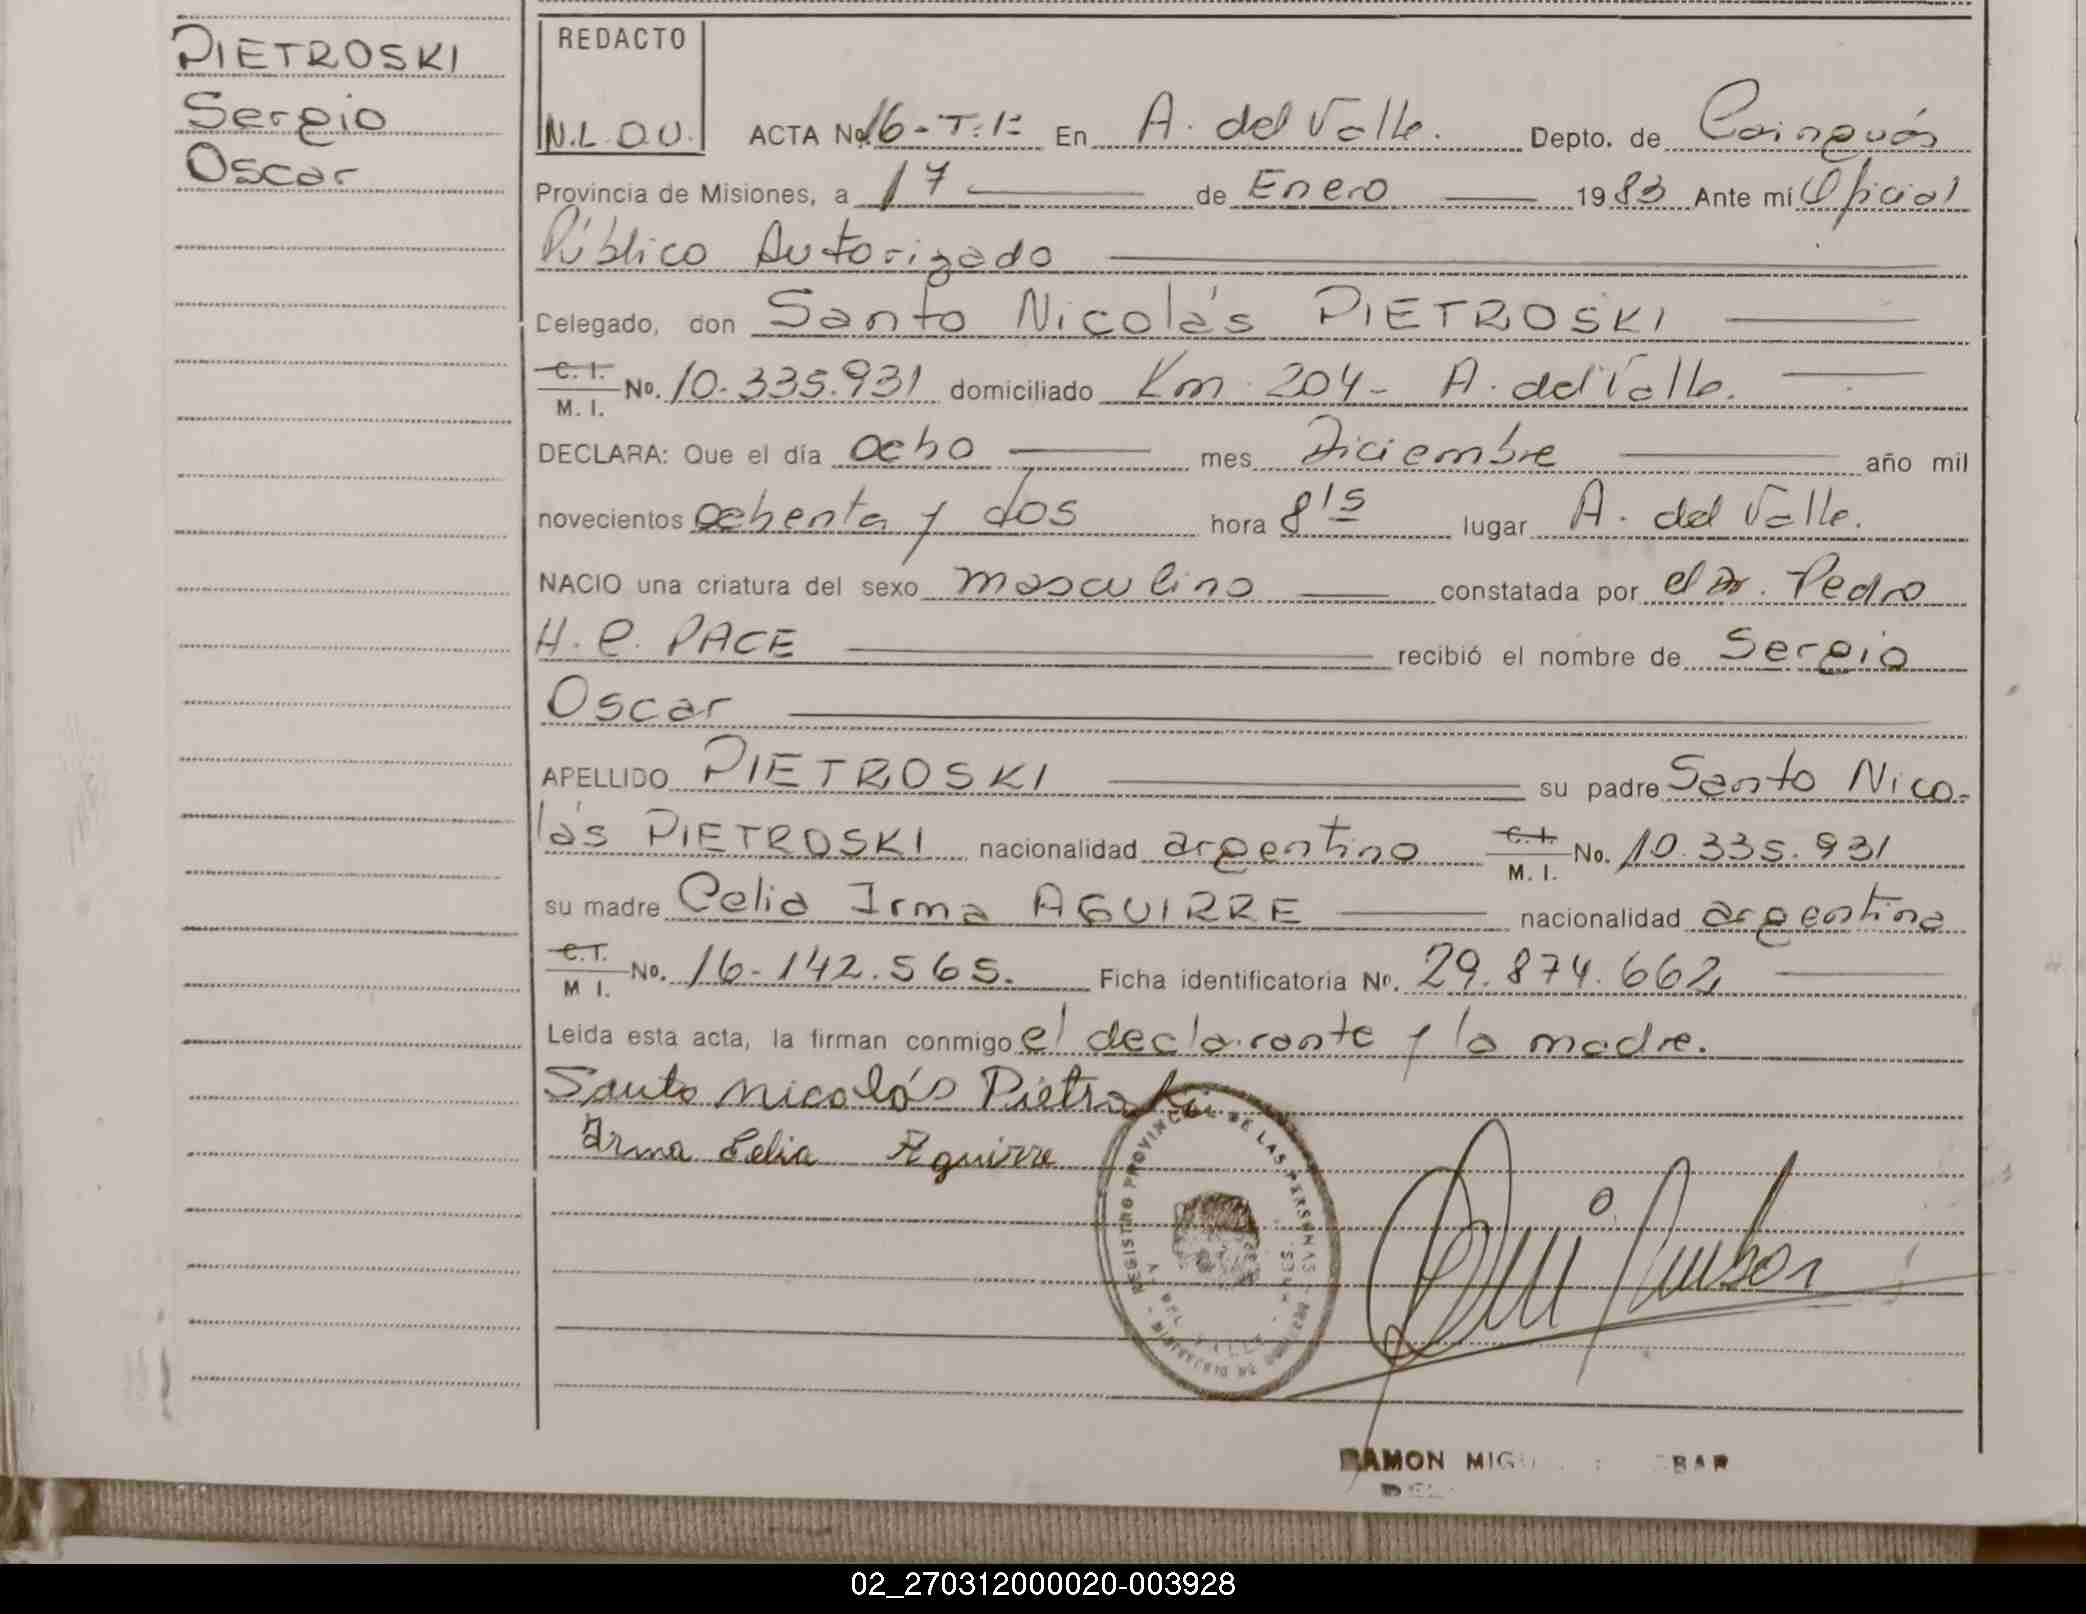 PIETROSKI
Sergio
Oscar
REDACTO
N.L.O.U.
ACTA No. 16-T.1: En A. del Valle. Depto. de Cainguás
Provincia de Misiones, a 17 de Enero 1983 Ante mí Oficial
Público Autorizado
Celegado, don Santo Nicolás PIETROSKI
C. I. M. I. No. 10.335.931 domiciliado Km. 204- A. del Valle.
DECLARA: Que el día ocho mes Diciembre año mil
novecientos ochenta y dos hora 8'15 lugar A. del Valle.
NACIO una criatura del sexo masculino constatada por el Dr. Pedro
H. C. PACE recibió el nombre de Sergio
Oscar
APELLIDO PIETROSKI su padre Santo Nico-
lás PIETROSKI nacionalidad argentino C. I. M. I. No. 10.335.931
su madre Celia Irma AGUIRRE nacionalidad argentina
C. I. M I. No. 16-142.565. Ficha identificatoria No. 29.874.662
Leida esta acta, la firman conmigo el declarante y la madre.
Santo Nicolás Pietroski
Irma Celia Aguirre
REGISTRO PROVINCIAL DE LAS PERSONAS
A. DEL VALLE
RAMON
02_270312000020-003928